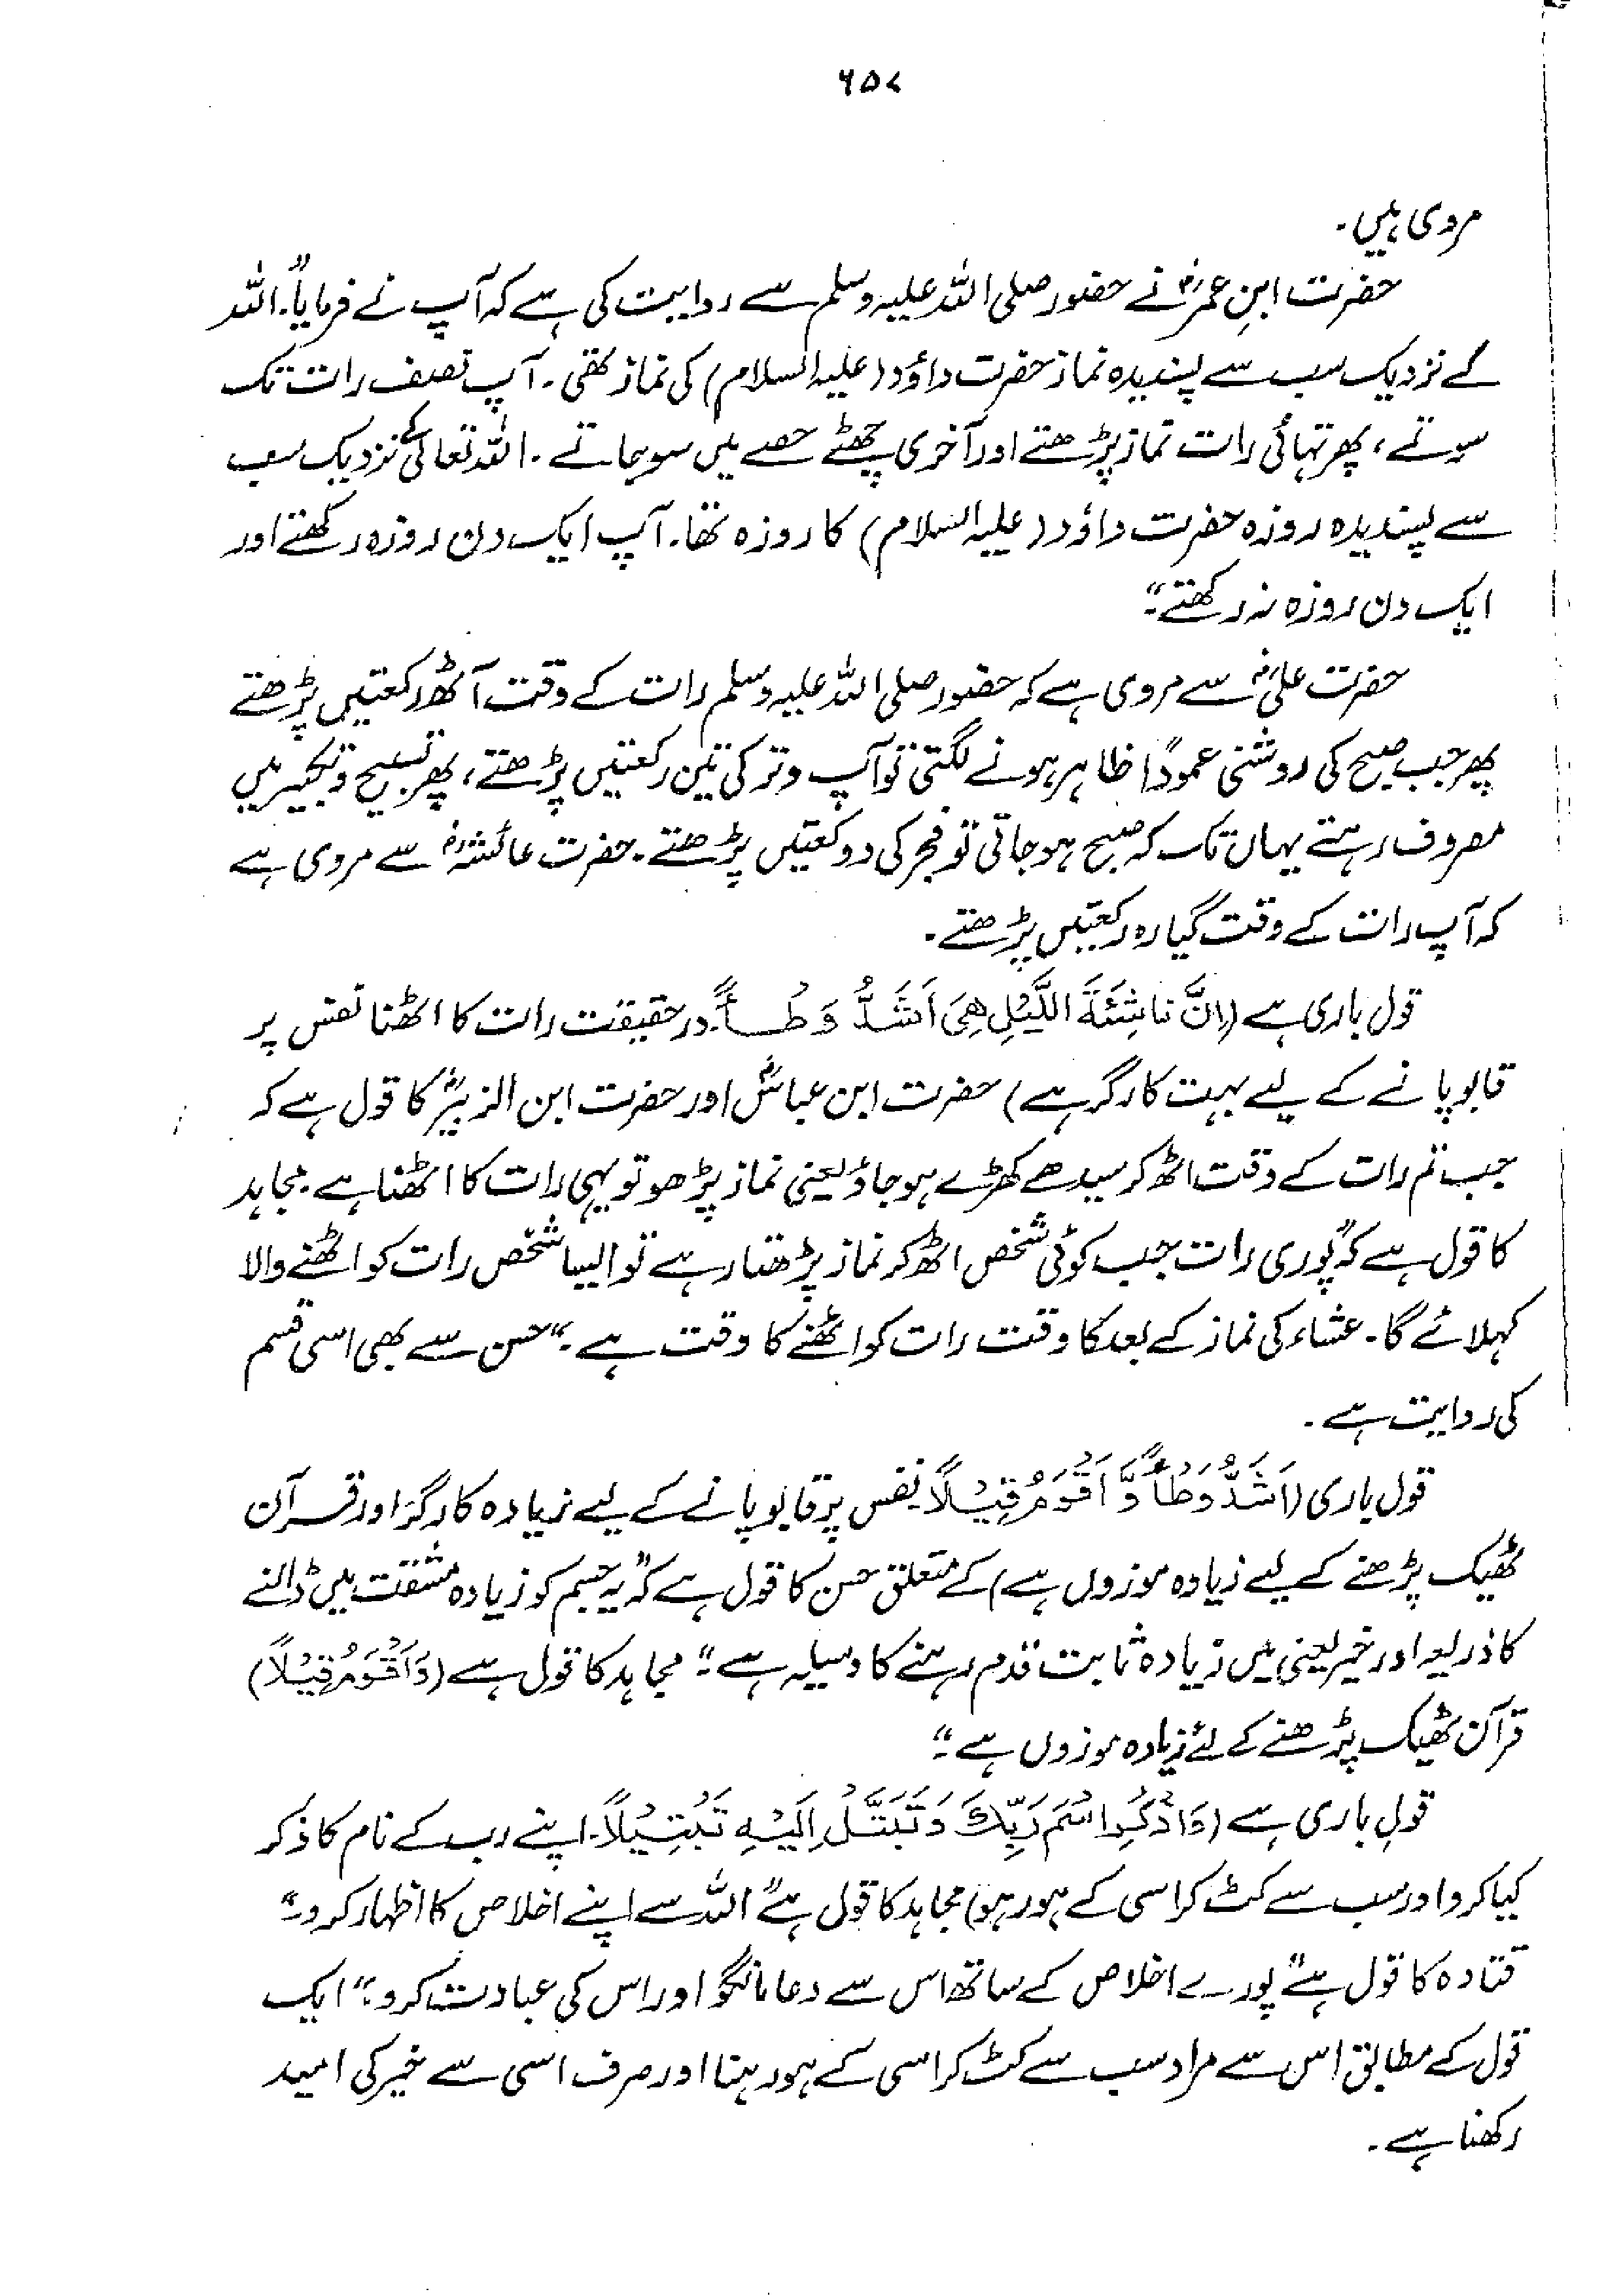 ۶۵۷
مروی ہیں۔
حضرت ابنِ عمرؓ نے حضور صلی اللہ علیہ وسلم سے روایت کی ہے کہ آپ نے فرمایا "اللہ
کے نزدیک سب سے پسندیدہ نماز حضرت داؤد (علیہ السلام) کی نماز تھی۔ آپ نصف رات تک
سوتے، پھر تہائی رات نماز پڑھتے اور آخری چھٹے حصے میں سو جاتے۔ اللہ تعالیٰ کے نزدیک سب
سے پسندیدہ روزہ حضرت داؤد (علیہ السلام) کا روزہ تھا۔ آپ ایک دن روزہ رکھتے اور
ایک دن روزہ نہ رکھتے۔"
حضرت علیؓ سے مروی ہے کہ حضور صلی اللہ علیہ وسلم رات کے وقت آٹھ رکعتیں پڑھتے
پھر جب صبح کی روشنی عموداً ظاہر ہونے لگتی تو آپ وتر کی تین رکعتیں پڑھتے، پھر تسبیح و تکبیر میں
مصروف رہتے یہاں تک کہ صبح ہو جاتی تو فجر کی دو رکعتیں پڑھتے۔ حضرت عائشہؓ سے مروی ہے
کہ آپ رات کے وقت گیارہ رکعتیں پڑھتے۔
قول باری ہے (اِنَّ نَاشِئَةَ اللَّيْلِ هِيَ اَشَدُّ وَطْأً۔ درحقیقت رات کا اٹھنا نفس پر
قابو پانے کے لیے بہت کارگر ہے) حضرت ابن عباسؓ اور حضرت ابن الزبیرؓ کا قول ہے کہ
جب تم رات کے وقت اٹھ کر سیدھے کھڑے ہو جاؤ یعنی نماز پڑھو تو یہی رات کا اٹھنا ہے۔ مجاہد
کا قول ہے کہ "پوری رات جب کوئی شخص اٹھ کر نماز پڑھتا رہے تو ایسا شخص رات کو اٹھنے والا
کہلائے گا۔ عشاء کی نماز کے بعد کا وقت رات کو اٹھنے کا وقت ہے۔" حسن سے بھی اسی قسم
کی روایت ہے۔
قول باری (اَشَدُّ وَطْأً وَّ اَقْوَمُ قِيْلًا۔ نفس پر قابو پانے کے لیے زیادہ کارگر اور قرآن
ٹھیک پڑھنے کے لیے زیادہ موزوں ہے) کے متعلق حسن کا قول ہے کہ "یہ جسم کو زیادہ مشقت میں ڈالنے
کا ذریعہ اور خیر یعنی میں زیادہ ثابت قدم رہنے کا وسیلہ ہے۔" مجاہد کا قول ہے (وَاَقْوَمُ قِيْلًا)
قرآن ٹھیک پڑھنے کے لئے زیادہ موزوں ہے۔"
قولِ باری ہے (وَاذْكُرِ اسْمَ رَبِّكَ وَتَبَتَّلْ اِلَيْهِ تَبْتِيْلًا۔ اپنے رب کے نام کا ذکر
کیا کرو اور سب سے کٹ کر اسی کے ہو رہو) مجاہد کا قول ہے "اللہ سے اپنے اخلاص کا اظہار کرو۔"
قتادہ کا قول ہے "پورے اخلاص کے ساتھ اس سے دعا مانگو اور اس کی عبادت کرو۔" ایک
قول کے مطابق اس سے مراد سب سے کٹ کر اسی کے ہو رہنا اور صرف اسی سے خیر کی امید
رکھنا ہے۔